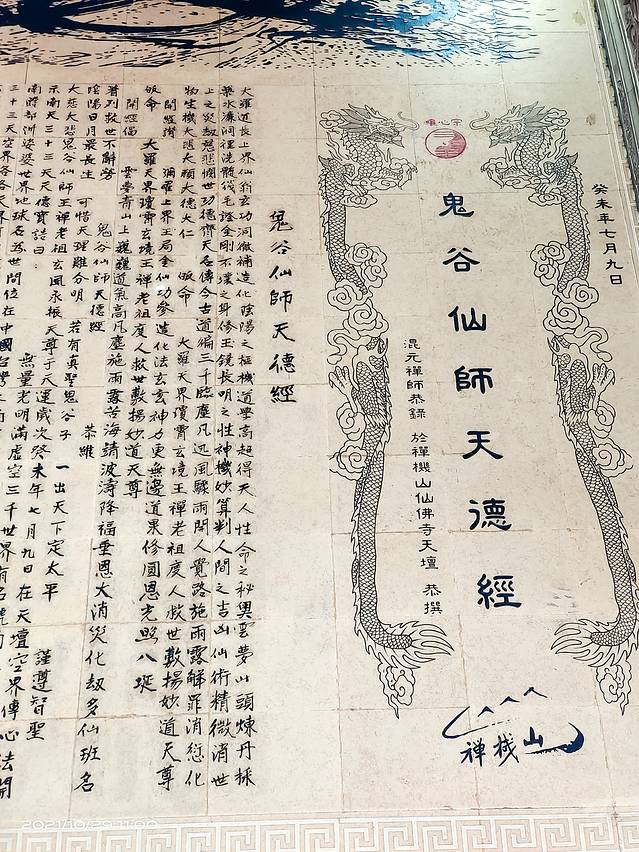 癸未年七月九日
唯心宗
鬼谷仙師天德經
混元禪師恭錄 於禪機山仙佛寺天壇 恭撰
禪機山
鬼谷仙師天德經
大羅道長上界仙翁玄功洞徹補造化陰陽之樞機道學高超得天人性命之秘奧雲夢山頭煉丹採
藥水濂洞裡洗髓伐毛證金剛不壞之身修玉鏡長明之性神機妙算判人間之吉凶仙術精微消世
上之災劫慈悲憫世功德齊天名傳今古道徧三千臨塵凡迅風驟雨開人覺路施雨露解罪消愆化
物生機大悲大願大德大仁 皈命 大羅天界瓊霄玄境王禪老祖度人救世敷揚妙道天尊
開經讚 彌羅上界玉局金仙功參造化法玄玄神力更無邊道果修圓恩光照八埏
皈命 大羅天界瓊霄玄境王禪老祖度人救世敷揚妙道天尊
開經偈 雲夢青山上巍巍道氣高凡塵施雨露苦海靖波濤降福垂恩大消災化劫多仙班名
普列救世不辭勞 鬼谷仙師天德經 恭維
陰陽日月最長生 可惜天理難分明 若有真聖鬼谷子 一出天下定太平 謹遵智聖
大慈大悲鬼谷仙師王禪老祖玄風永振天尊于天運歲次癸未年七月九日在天壇空界傳心法開
示南天三十三天天德寶誥曰： 無量老明滿虛空三千世界有名號
南瞻部洲娑婆世界地球名為世間位在中國台灣
三十三天空界各各天界
2021/10/29 11:00